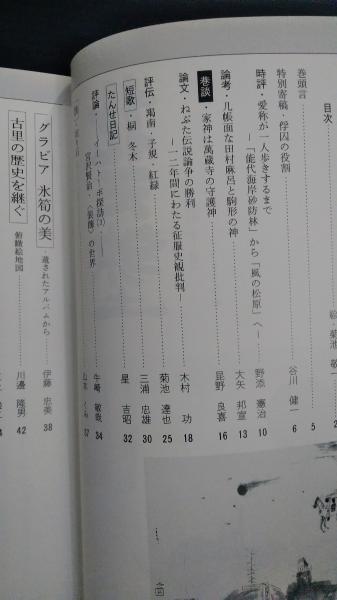 目次
絵・菊池 敬一
巻頭言 5
特別寄稿・俘囚の役割 谷川 健一 6
時評・愛称が一人歩きするまで
―「能代海岸砂防林」から「風の松原」へ― 野添 憲治 10
論考・几帳面な田村麻呂と駒形の神 大矢 邦宣 13
巷談・家神は萬蔵寺の守護神 昆野 良喜 16
論文・ねぶた伝説論争の勝利
―一二年間にわたる征服史観批判― 木村 功 18
評伝・羯南・子規・紅緑 菊池 達也 25
短歌・桐 冬木 三浦 忠雄 30
たんせ日記 星 吉昭 32
評論・イーハトーボ探訪(3) 牛崎 敏哉 34
宮沢賢治・〈装飾〉の世界 37
グラビア 氷筍の美 遺されたアルバムから 伊藤 忠美 38
古里の歴史を継ぐ 俯瞰絵地図 川邊 隆男 42